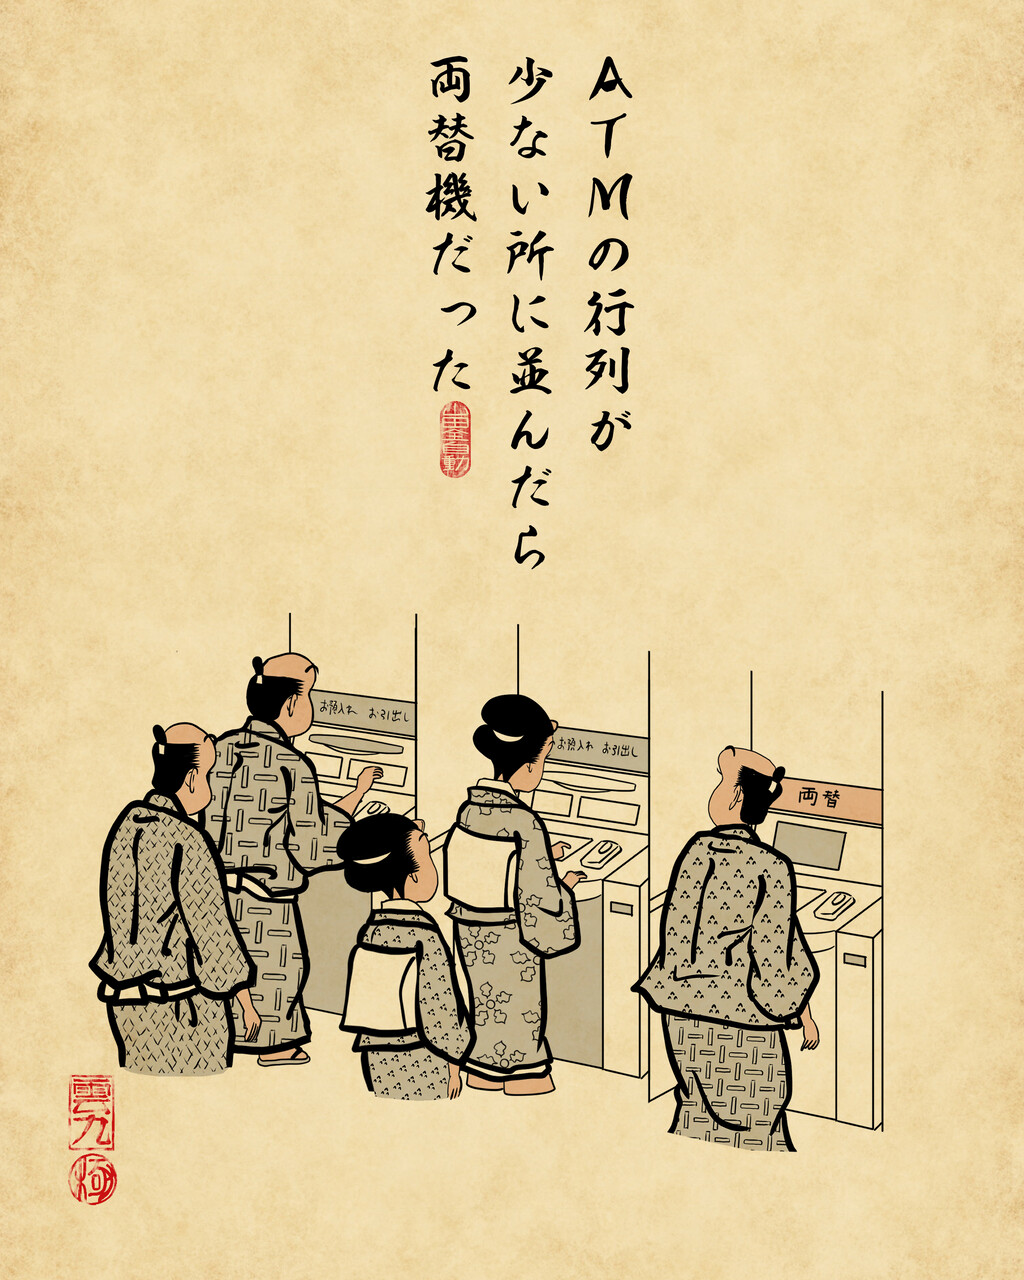 ATMの行列が
少ない所に並んだら
両替機だった
お預入れ お引出し
お預入れ お引出し
両替